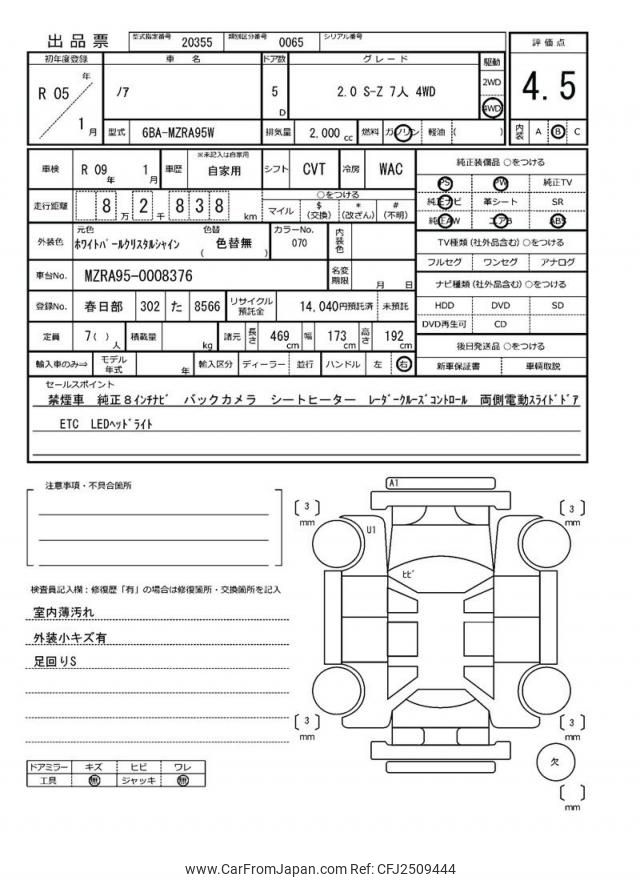 出品票 型式指定番号 20355 類別区分番号 0065 シリアル番号
初年度登録 車名 ドア数 グレード 駆動 評価点
R 05 年 1 月 ノア 5 D 2.0 S-Z 7人 4WD 2WD 4WD 4.5
型式 6BA-MZRA95W 排気量 2,000 cc 燃料 ガソリン 軽油 ( ) 内装 A B C
車検 R 09 年 1 月 車歴 ※未記入は自家用 自家用 シフト CVT 冷房 WAC
走行距離 8 万 2 千 8 3 8 km ○をつける マイル $ (交換) * (改ざん) # (不明)
外装色 元色 ﾎﾜｲﾄﾊﾟｰﾙｸﾘｽﾀﾙｼｬｲﾝ 色替 ( 色替無 ) カラーNo. 070 内装色
車台No. MZRA95-0008376 名変期限 月 日
登録No. 春日部 302 た 8566 リサイクル預託金 14,040円預託済 未預託
定員 7( ) 人 積載量 kg 諸元 長さ 469 cm 幅 173 cm 高さ 192 cm
輸入車のみ⇒ モデル年式 年 輸入区分 ディーラー 並行 ハンドル 左 右
純正装備品 ○をつける
PS PW 純正TV
純正ナビ 革シート SR
純正AW エアB ABS
TV種類 (社外品含む) ○をつける
フルセグ ワンセグ アナログ
ナビ種類 (社外品含む) ○をつける
HDD DVD SD
DVD再生可 CD
後日発送品 ○をつける
新車保証書 車輌取説
セールスポイント
禁煙車 純正８ｲﾝﾁﾅﾋﾞ バックカメラ シートヒーター ﾚｰﾀﾞｰｸﾙｰｽﾞｺﾝﾄﾛｰﾙ 両側電動ｽﾗｲﾄﾞﾄﾞｱ
ETC LEDﾍｯﾄﾞﾗｲﾄ
注意事項・不具合箇所
検査員記入欄：修復歴「有」の場合は修復箇所・交換箇所を記入
室内薄汚れ
外装小キズ有
足回りS
ドアミラー キズ ヒビ ワレ
工具 無 ジャッキ 無
A1
3 mm
3 mm
U1
ﾋﾋﾞ
3 mm
3 mm
欠
mm
www.CarFromJapan.com Ref: CFJ2509444